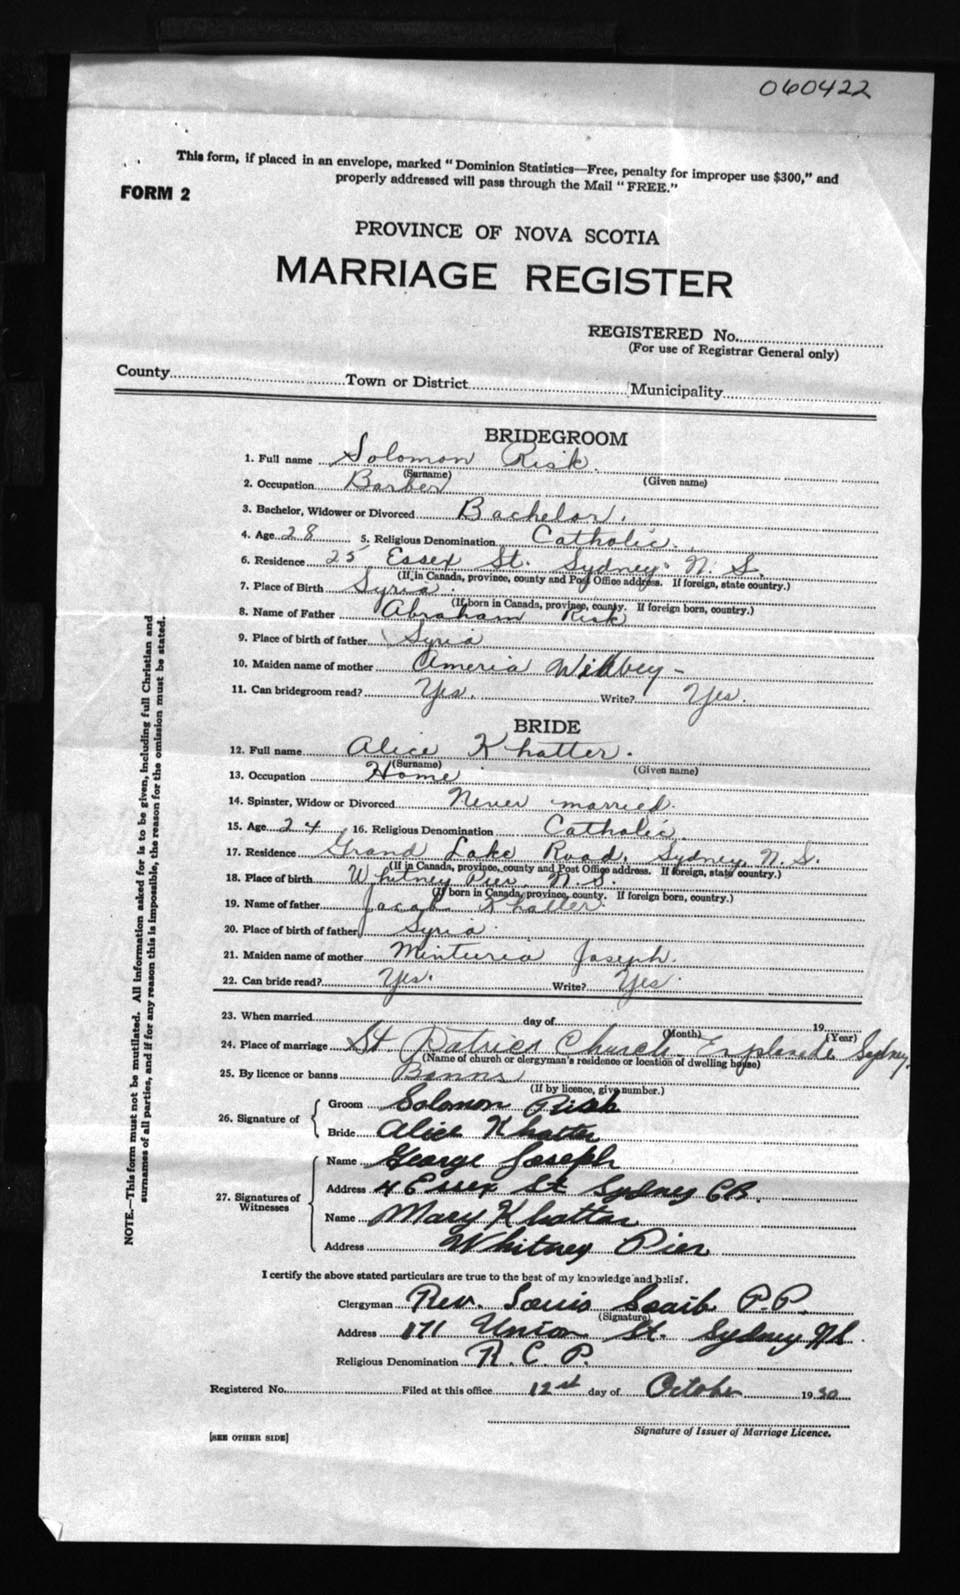 060422
This form, if placed in an envelope, marked "Dominion Statistics—Free, penalty for improper use $300," and
properly addressed will pass through the Mail "FREE."
FORM 2
PROVINCE OF NOVA SCOTIA
MARRIAGE REGISTER
REGISTERED No.
(For use of Registrar General only)
County Town or District Municipality
BRIDEGROOM
1. Full name Solomon Risk.
(Surname) (Given name)
2. Occupation Barber
3. Bachelor, Widower or Divorced Bachelor.
4. Age 28 5. Religious Denomination Catholic.
6. Residence 25 Essex St. Sydney N. S.
(If in Canada, province, county and Post Office address. If foreign, state country.)
7. Place of Birth Syria.
(If born in Canada, province, county. If foreign born, country.)
8. Name of Father Abraham Risk
9. Place of birth of father Syria
10. Maiden name of mother Ameria
11. Can bridegroom read? Yes. Write? Yes.
BRIDE
12. Full name Alice Khatter.
(Surname) (Given name)
13. Occupation Home
14. Spinster, Widow or Divorced Never married.
15. Age 24 16. Religious Denomination Catholic.
17. Residence Grand Lake Road, Sydney, N. S.
(If in Canada, province, county and Post Office address. If foreign, state country.)
18. Place of birth Whitney Pier, N. S.
(If born in Canada, province, county. If foreign born, country.)
19. Name of father Jacob Khatter
20. Place of birth of father Syria.
21. Maiden name of mother Minturia Joseph.
22. Can bride read? Yes. Write? Yes.
23. When married day of 19
(Month) (Year)
24. Place of marriage St. Patrics Church Esplanade Sydney.
(Name of church or clergyman's residence or location of dwelling house)
25. By licence or banns Banns
(If by licence, give number.)
26. Signature of
Groom Solomon Risk
Bride Alice Khatter
27. Signatures of Witnesses
Name George Joseph
Address 4 Essex St Sydney CB.
Name Mary Khattar
Address Whitney Pier
I certify the above stated particulars are true to the best of my knowledge and belief.
Clergyman Rev. Louis P.P.
(Signature)
Address 171 Union St. Sydney NS.
Religious Denomination R. C. P.
Registered No. Filed at this office 12st day of October 1930
Signature of Issuer of Marriage Licence.
[SEE OTHER SIDE]
NOTE.—This form must not be mutilated. All information asked for is to be given, including full Christian and
surnames of all parties, and if for any reason this is impossible, the reason for the omission must be stated.